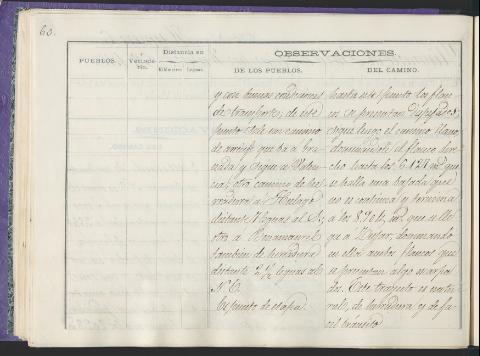 60.
PUEBLOS.
Vecindario.
Distancia en
Kilómetros
Leguas.
OBSERVACIONES.
DE LOS PUEBLOS.
DEL CAMINO.
y con buenas condiciones
de transportes; de este
punto sale un camino
de
que va a Gra-
nada y sigue a Valen-
cia; otro camino de her-
radura a Hulago
distante leguas al S.,
otro a Benamaurel
tambien de herradura
distante 2 1/2 leguas al
N. E.
Es punto de etapa.
hasta este punto los flan-
cos se presentan despejados,
sigue luego el camino llano
dominandole el flanco dere-
cho hasta los 6.128 m. que
se halla una bajada que
no es continua y termina
a los 8.904, m. que se lle-
ga a Zujar; dominando
en ella ambos flancos que
se presentan algo escarpa-
dos. Este trayecto es natu-
ral, de herradura y de fa-
cil transito